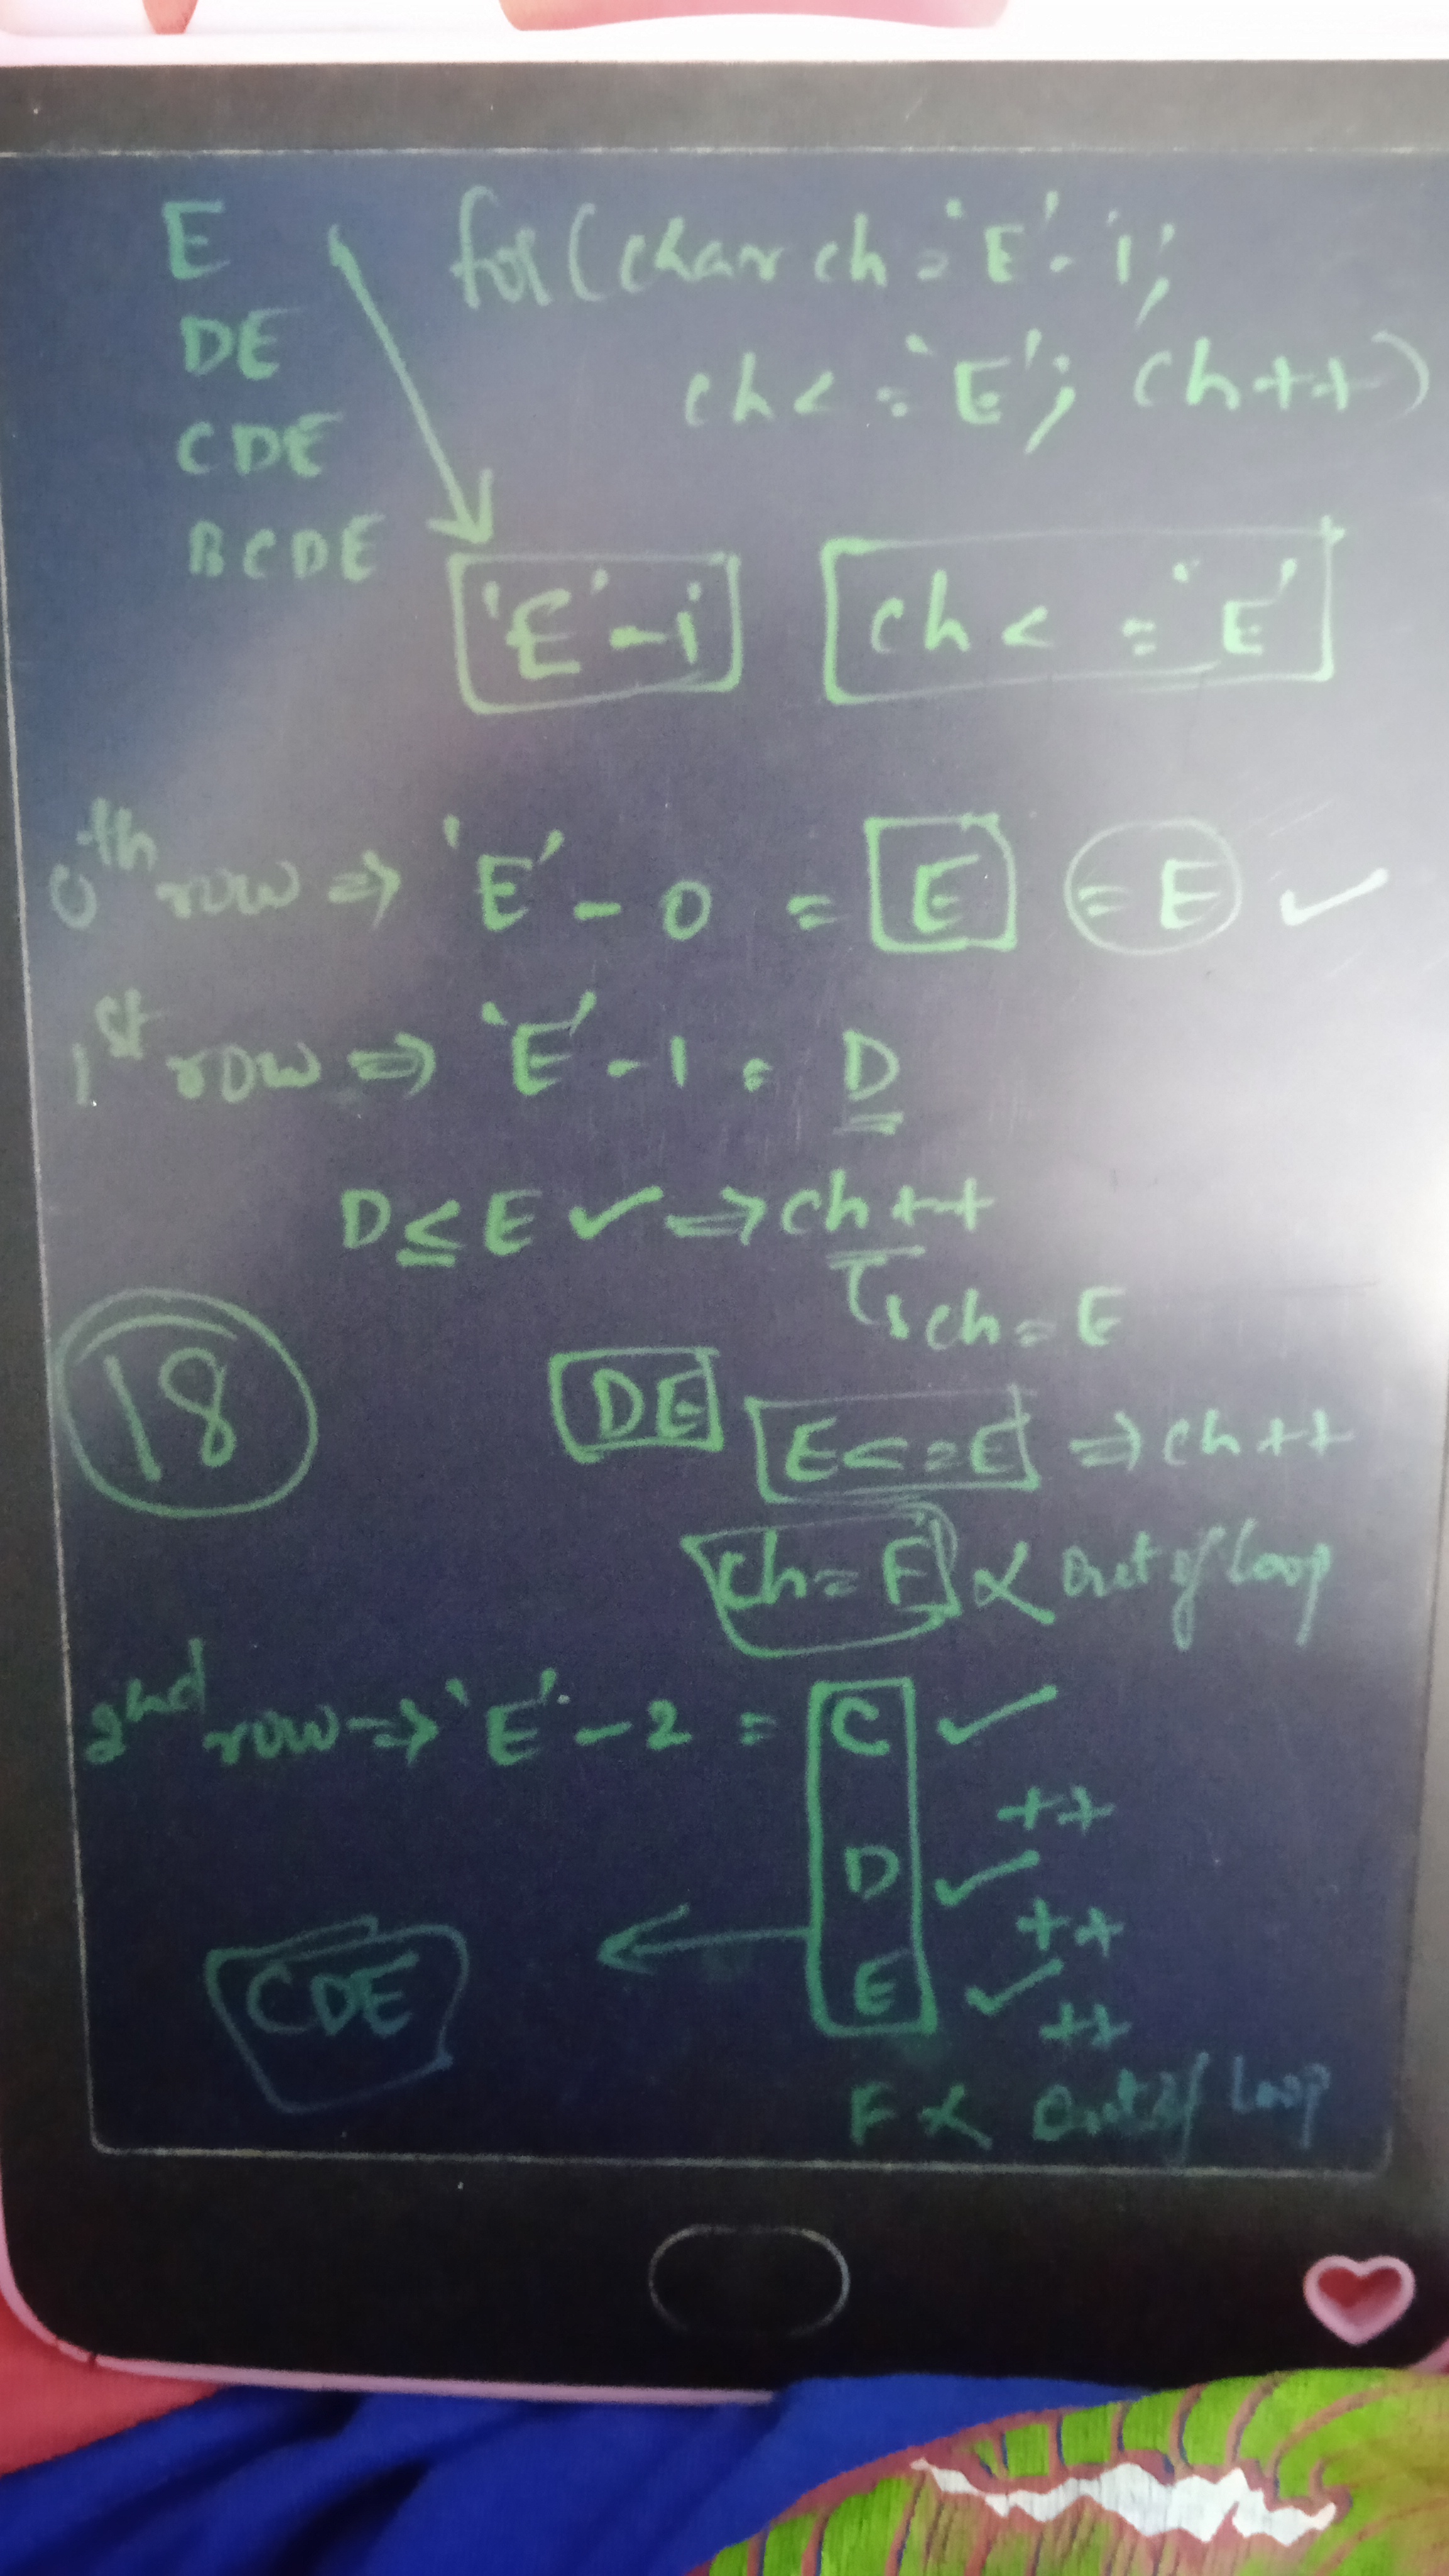 E
DE
CDE
BCDE
for(char ch = 'E' - i;
ch <= 'E'; ch++)
'E' - i
ch <= 'E'
0th row => 'E' - 0 = E = E ✓
1st row => 'E' - 1 = D
D ≤ E ✓ => ch++
ch = E
18
DE
E <= E => ch++
ch = F ✗ Out of loop
2nd row => 'E' - 2 = C ✓
++
D ✓
++
E ✓
++
CDE
F ✗ Out of loop